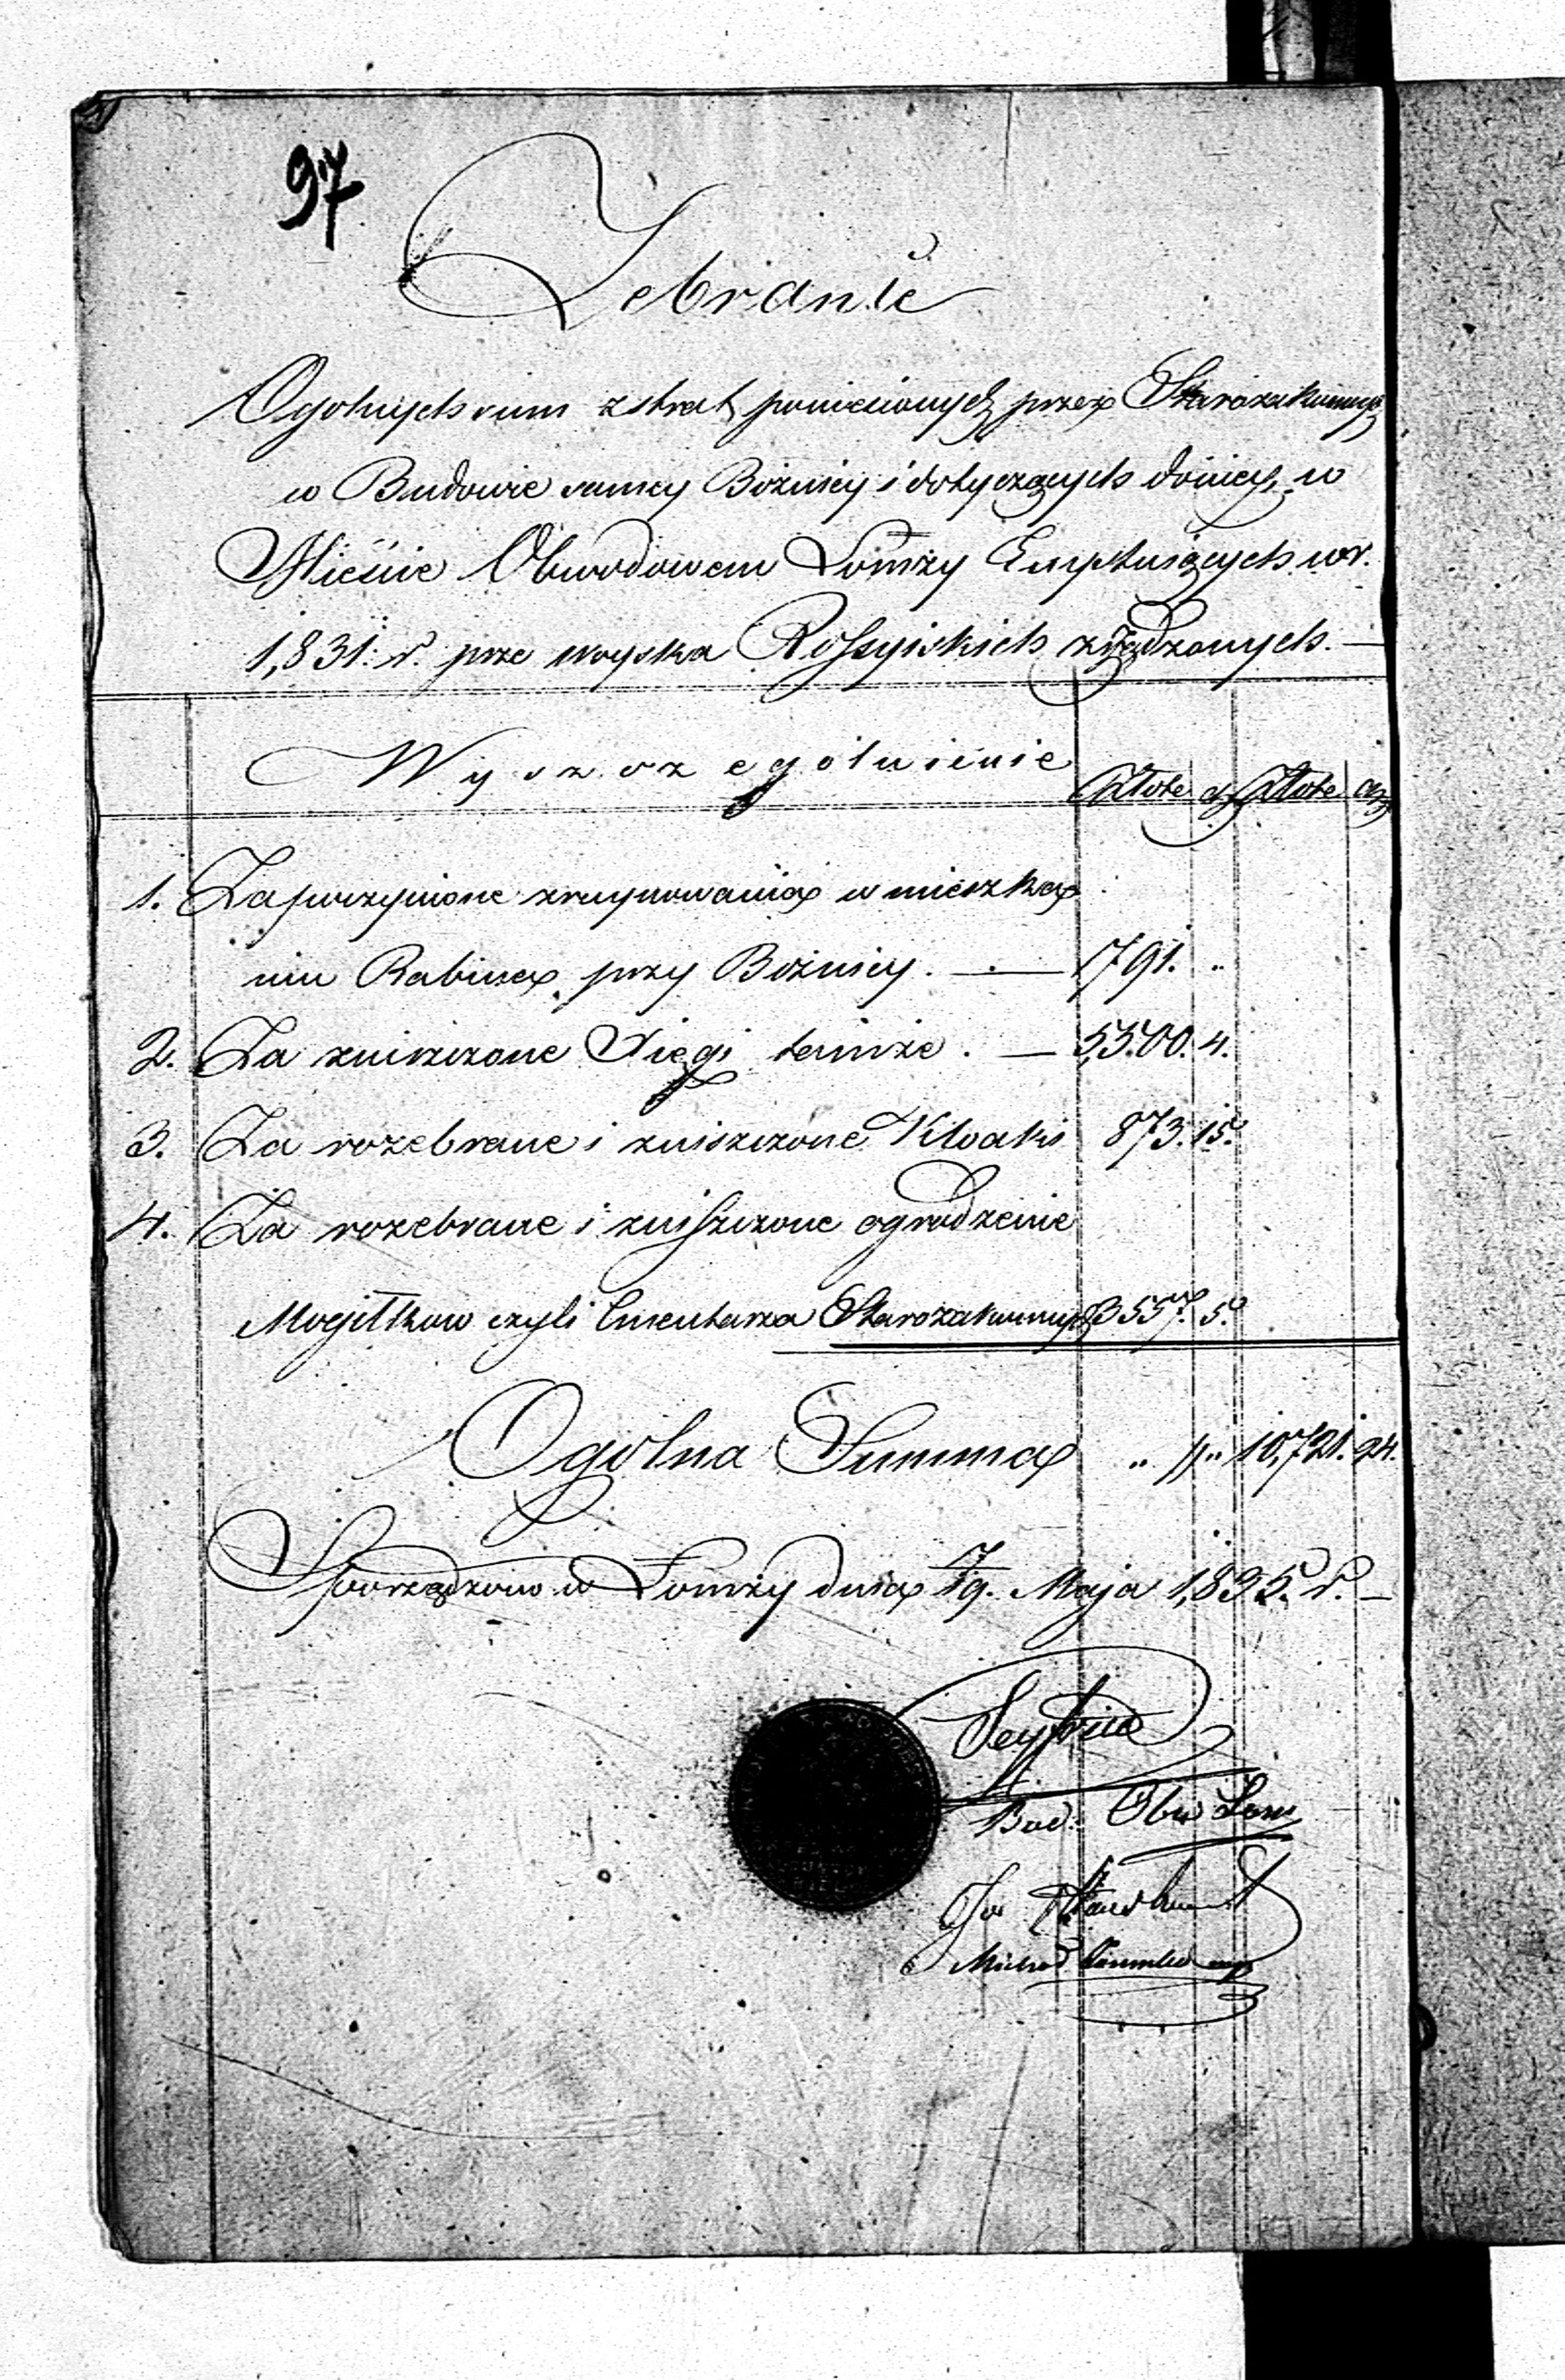 97
Zebranie
Ogolnych sum z strat poniesionych przez Starozakonnych
w Budowie samey Bożnicy i dotyczących doniey w
Mieście Obwodowem Łomży Exystuiących wr.
1,831. r. przez woyska Rossyiskich zrządzonych. —
Wyszczególnienie Złote gr Złote gr
1. Za poczynione zruynowania w mieszka
niu Rabina przy Bożnicy. — 1791. "
2. Za zniszczone Xięgi tamże. — 5,500. 4.
3. Za rozebrane i zniszczone Kloaki 873. 15.
4. Za rozebrane i zniszczone ogrodzenie
Mogiłkow czyli Cmentarza Starozakonnych 3557. 5.
Ogolna Summa " " 10,721. 24.
Sporządzono w Łomży dnia 7/19. Maja 1,835. r. —
Bud. Obw Łom
Michał